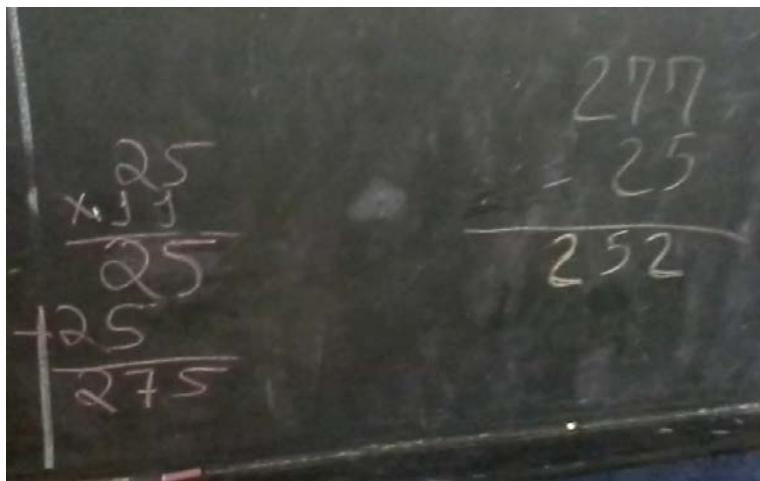 25
x 11
25
+25
275
277
- 25
252